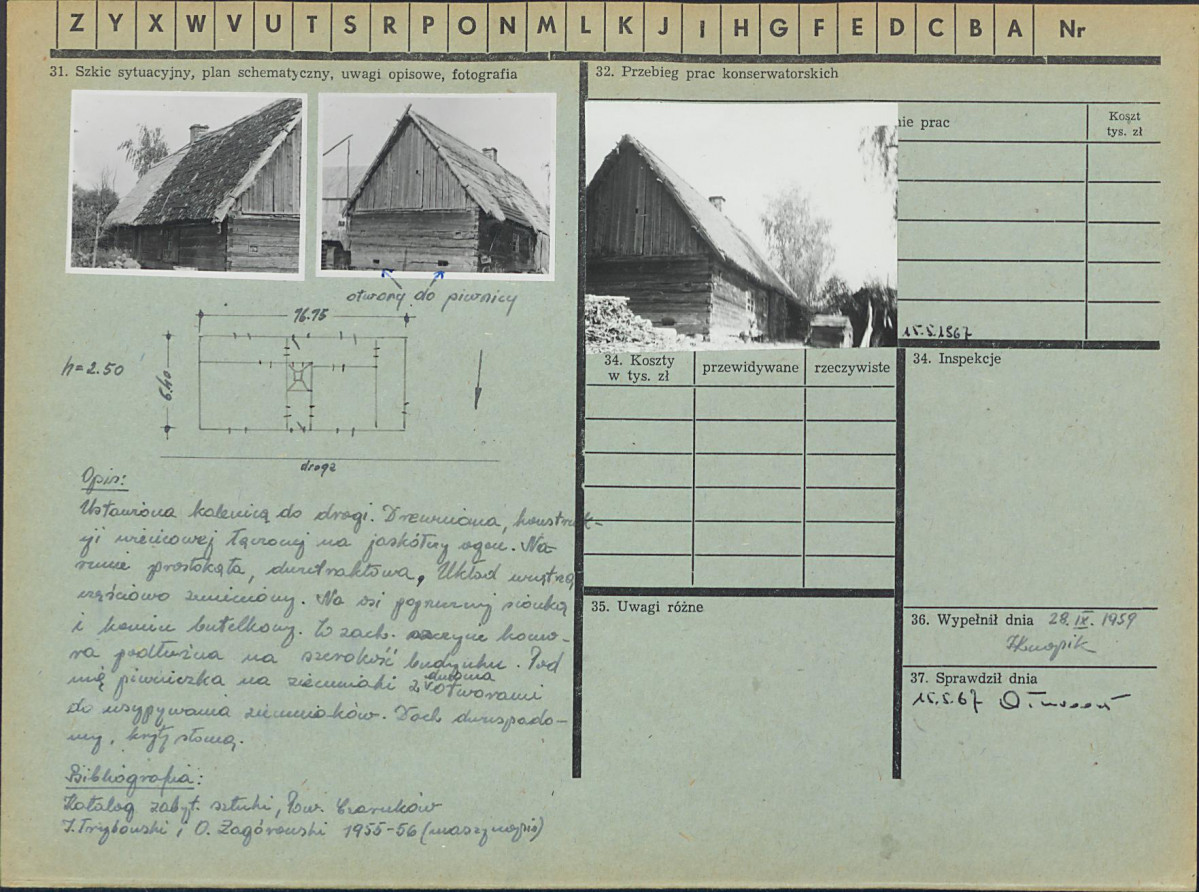 Z Y X W V U T S R P O N M L K J I H G F E D C B A Nr
31. Szkic sytuacyjny, plan schematyczny, uwagi opisowe, fotografia
otwory do piwnicy
16.75
h=2.50
6.40
droga
Opis:
Ustawiona kalenicą do drogi. Drewniana, konstruk-
cji wieńcowej łączonej na jaskółczy ogon. Na-
rzucie prostokąta, dwutraktowa, Układ wnętrza
częściowo zmieniony. Na osi poprzecznej sionka
i komin butelkowy. W zach. szczycie komo-
ra podłużna na szerokość budynku. Pod
nią piwniczka na ziemniaki z dwoma otworami
do wsypywania ziemniaków. Dach dwuspado-
wy, kryty słomą.
Bibliografia:
Katalog zabyt. sztuki, Pow. Czarnków
i O. Zagórowski 1955-56 (maszynopis)
32. Przebieg prac konserwatorskich
nie prac
Koszt
tys. zł
15.5.1967
34. Koszty
w tys. zł
przewidywane
rzeczywiste
34. Inspekcje
35. Uwagi różne
36. Wypełnił dnia 28.IX.1959
37. Sprawdził dnia
15.5.67